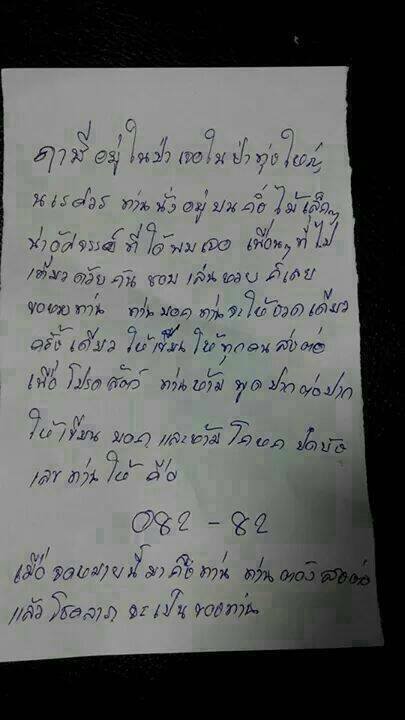 ฤาษี อยู่ ในป่า เจอใน ป่า ทุ่ง ใหญ่
นเรศวร ท่าน นั่ง อยู่ บน กิ่ง ไม้ เล็กๆ
น่า อัศจรรย์ ที่ ได้ พบ เจอ เพื่อนๆ ที่ ไป
เที่ยว ด้วย กัน ชอบ เล่น หวย ก็เลย
ขอหวยท่าน ท่าน บอก ท่าน จะ ให้ งวด เดียว
ครั้ง เดียว ให้ เขียน ให้ ทุก คน ส่ง ต่อ
เพื่อ โปรด สัตว์ ท่าน ห้าม พูด ปาก ต่อ ปาก
ให้ เขียน บอก และ ห้าม โกหก ปิดบัง
เลข ท่าน ให้ คือ
082 - 82
เมื่อ จดหมาย นี้ มา ถึง ท่าน ท่าน ต้อง ส่งต่อ
แล้ว โชคลาภ จะ เป็น ของท่าน